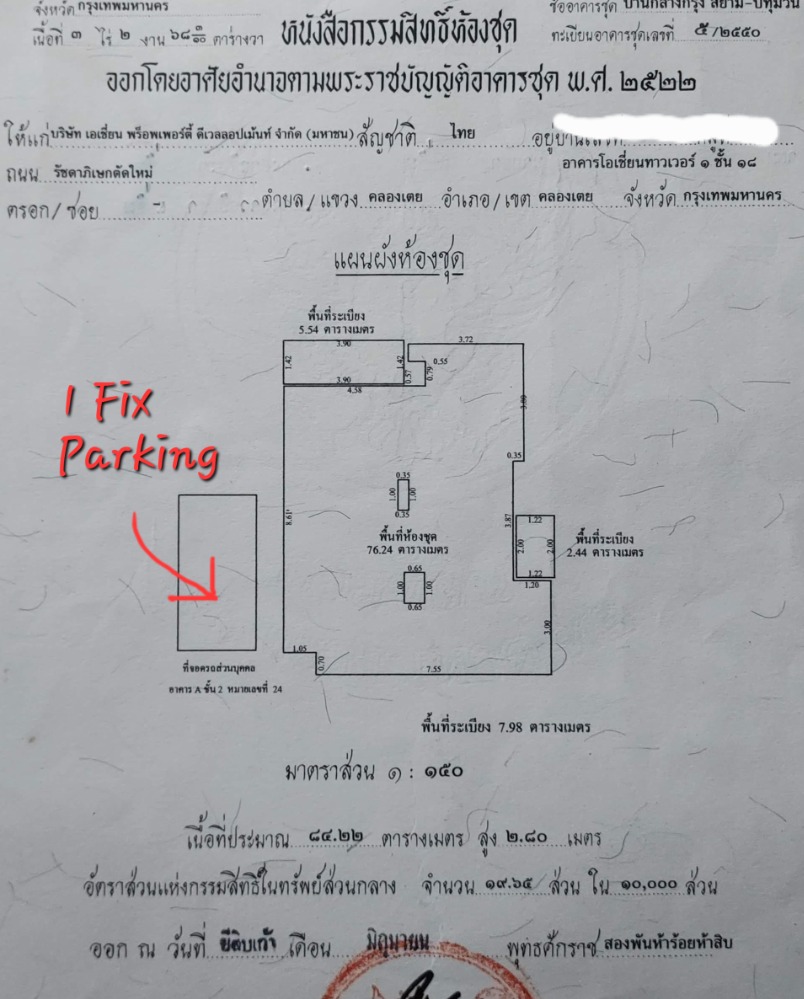 จังหวัด กรุงเทพมหานคร
ชื่ออาคารชุด บ้านกลางกรุง สยาม-ปทุมวัน
เนื้อที่ ๓ ไร่ ๒ งาน ๖๘ ตารางวา
หนังสือกรรมสิทธิ์ห้องชุด
ทะเบียนอาคารชุดเลขที่ ๕/๒๕๕๐
ออกโดยอาศัยอำนาจตามพระราชบัญญัติอาคารชุด พ.ศ. ๒๕๒๒
ให้แก่ บริษัท เอเชี่ยน พร็อพเพอร์ตี้ ดีเวลลอปเม้นท์ จำกัด (มหาชน) สัญชาติ ไทย อยู่บ้านเลขที่
ถนน รัชดาภิเษกตัดใหม่ อาคารโอเชี่ยนทาวเวอร์ ๑ ชั้น ๑๘
ตรอก/ซอย ตำบล/แขวง คลองเตย อำเภอ/เขต คลองเตย จังหวัด กรุงเทพมหานคร
แผนผังห้องชุด
พื้นที่ระเบียง
5.54 ตารางเมตร
3.90
1.42
1.42
3.90
4.58
0.57
0.79
0.55
3.72
3.80
0.35
1 Fix
Parking
8.61
0.35
1.00
1.00
0.35
พื้นที่ห้องชุด
76.24 ตารางเมตร
0.65
1.00
1.00
0.65
3.87
1.22
2.00
2.00
1.22
1.20
พื้นที่ระเบียง
2.44 ตารางเมตร
3.00
1.05
0.70
7.55
ที่จอดรถส่วนบุคคล
อาคาร A ชั้น 2 หมายเลขที่ 24
พื้นที่ระเบียง 7.98 ตารางเมตร
มาตราส่วน ๑ : ๑๕๐
เนื้อที่ประมาณ ๘๔.๒๒ ตารางเมตร สูง ๒.๘๐ เมตร
อัตราส่วนแห่งกรรมสิทธิ์ในทรัพย์ส่วนกลาง จำนวน ๑๙.๖๕ ส่วน ใน ๑๐,๐๐๐ ส่วน
ออก ณ วันที่ ยี่สิบเก้า เดือน มิถุนายน พุทธศักราช สองพันห้าร้อยห้าสิบ